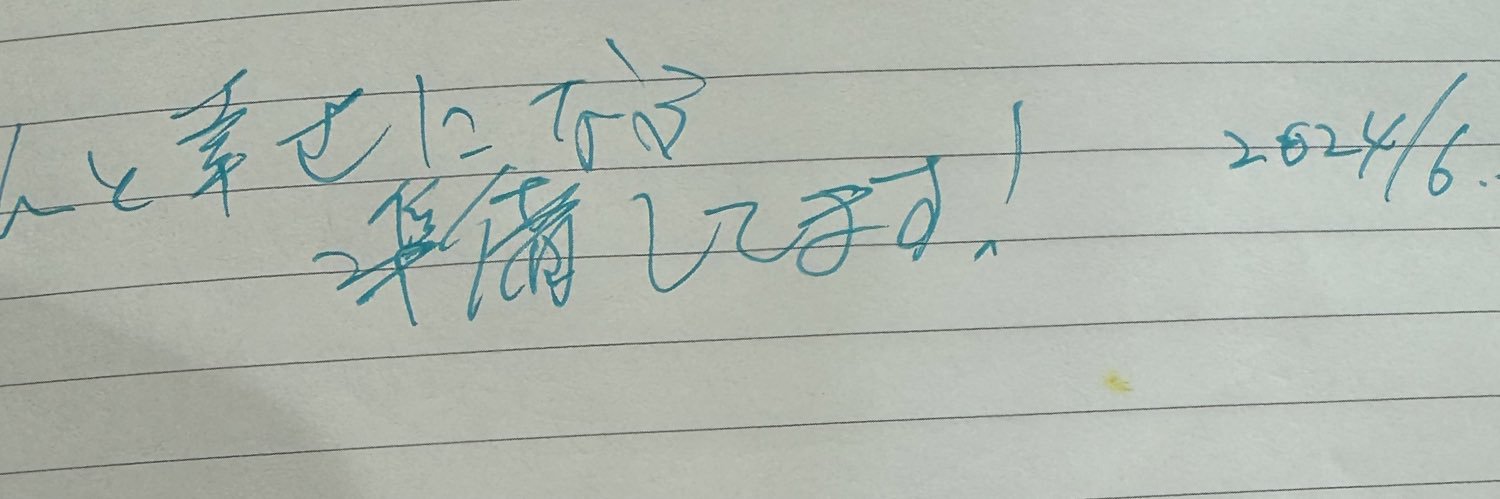 んと幸せになる 2024/6
準備してます!